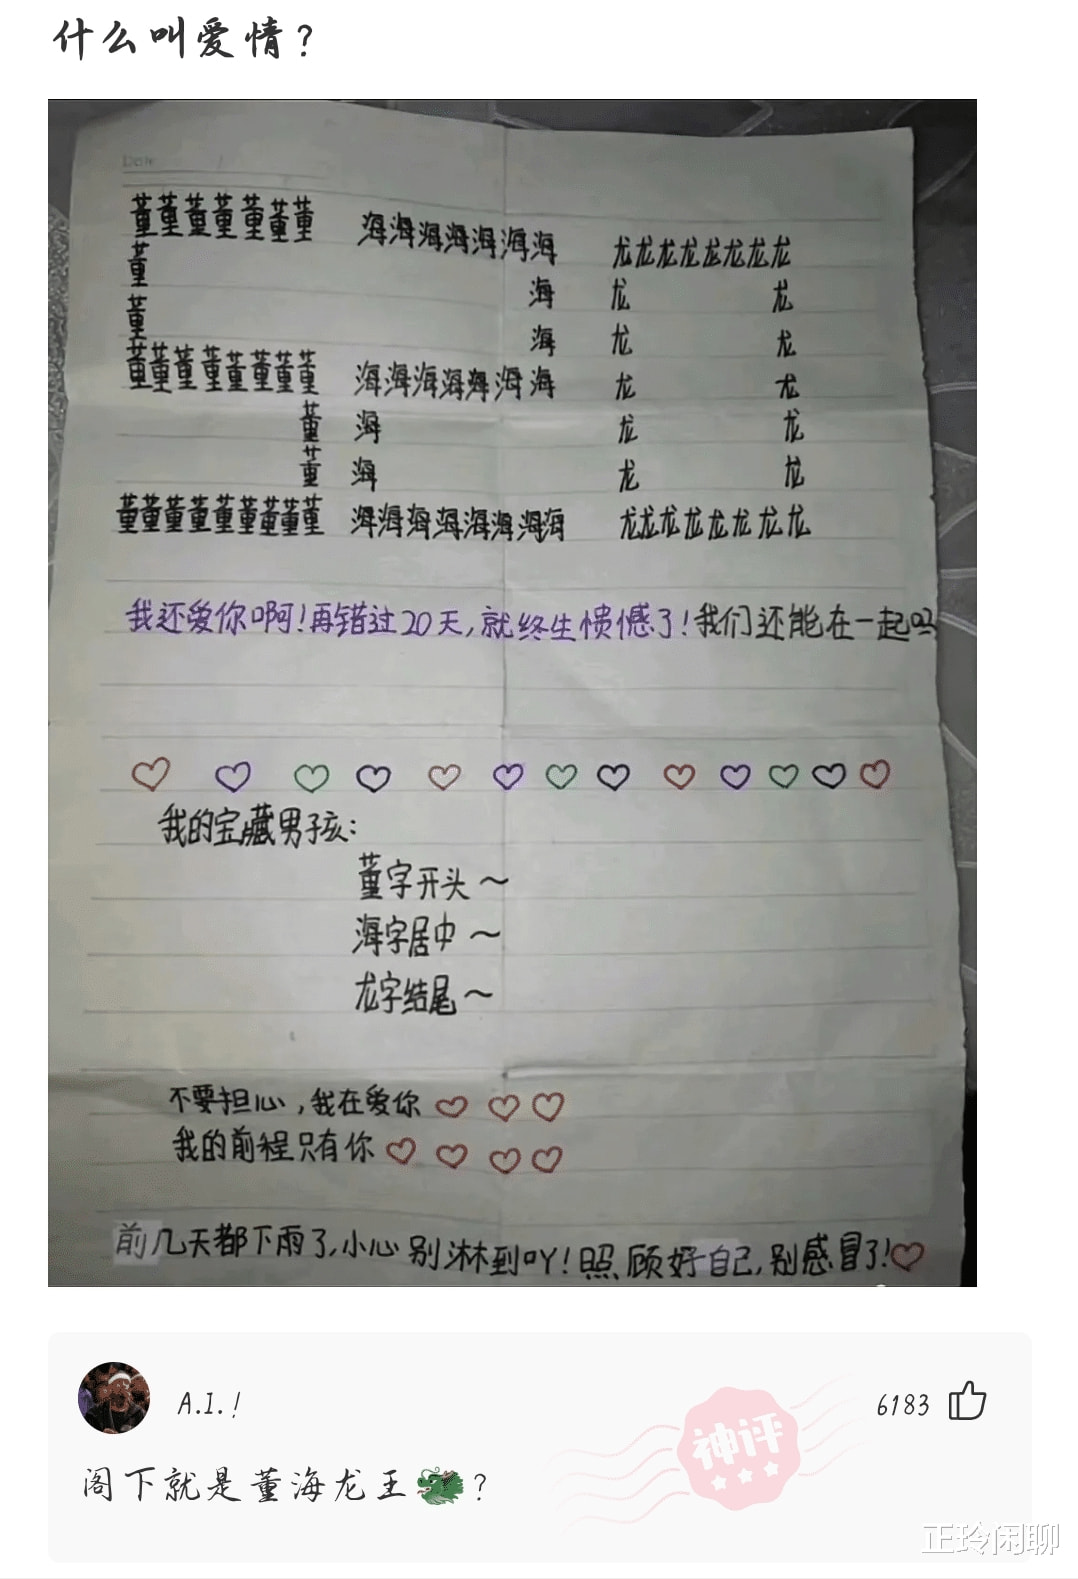 什么叫爱情?
Date
董董董董董董董 海海海海海海海 龙龙龙龙龙龙龙龙
董 海 龙 龙
董 海 龙 龙
董董董董董董董董 海海海海海海海 龙 龙
董 海 龙 龙
董 海 龙 龙
董董董董董董董董董 海海海海海海海海 龙龙龙龙龙龙龙龙
我还爱你啊!再错过20天,就终生愦憾了!我们还能在一起吗
我的宝藏男孩:
董字开头~
海字居中~
龙字结尾~
不要担心,我在爱你
我的前程只有你
前几天都下雨了,小心别淋到吖!照顾好自己,别感冒了!
A.I.!
6183
神评
阁下就是董海龙王🐲?
正玲闲聊